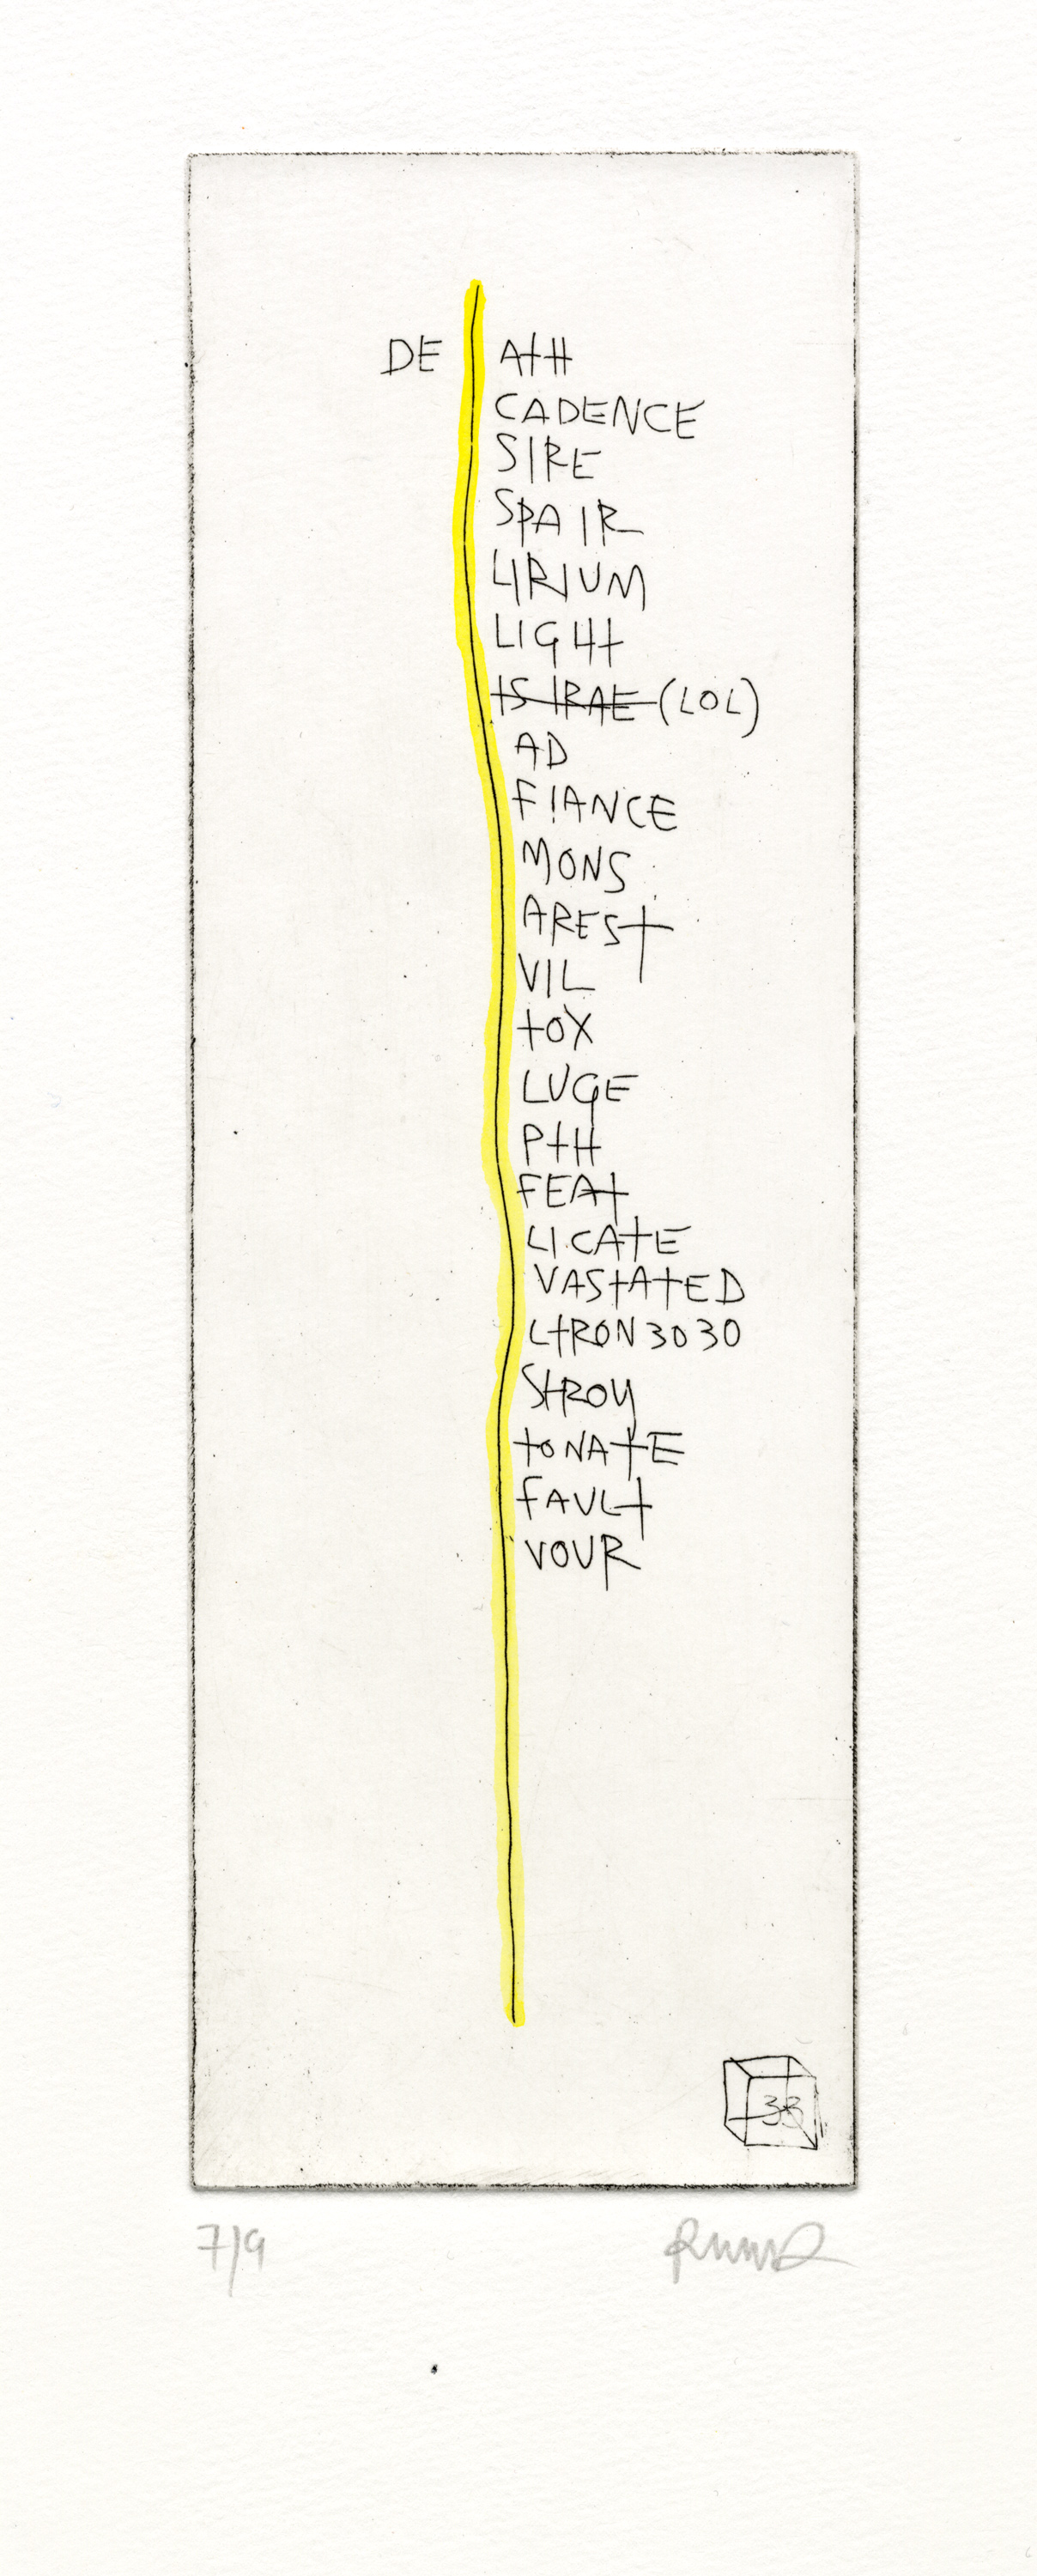 DE AtH
CADENCE
SIRE
SPAIR
LIRIUM
LIGHt
IS IRAE (LOL)
AD
FIANCE
MONS
AREST
VIL
tOX
LUGE
PtH
FEAt
LICAtE
VAStAtED
LtRON3030
StROY
tONAtE
FAULt
VOUR
33
7/9